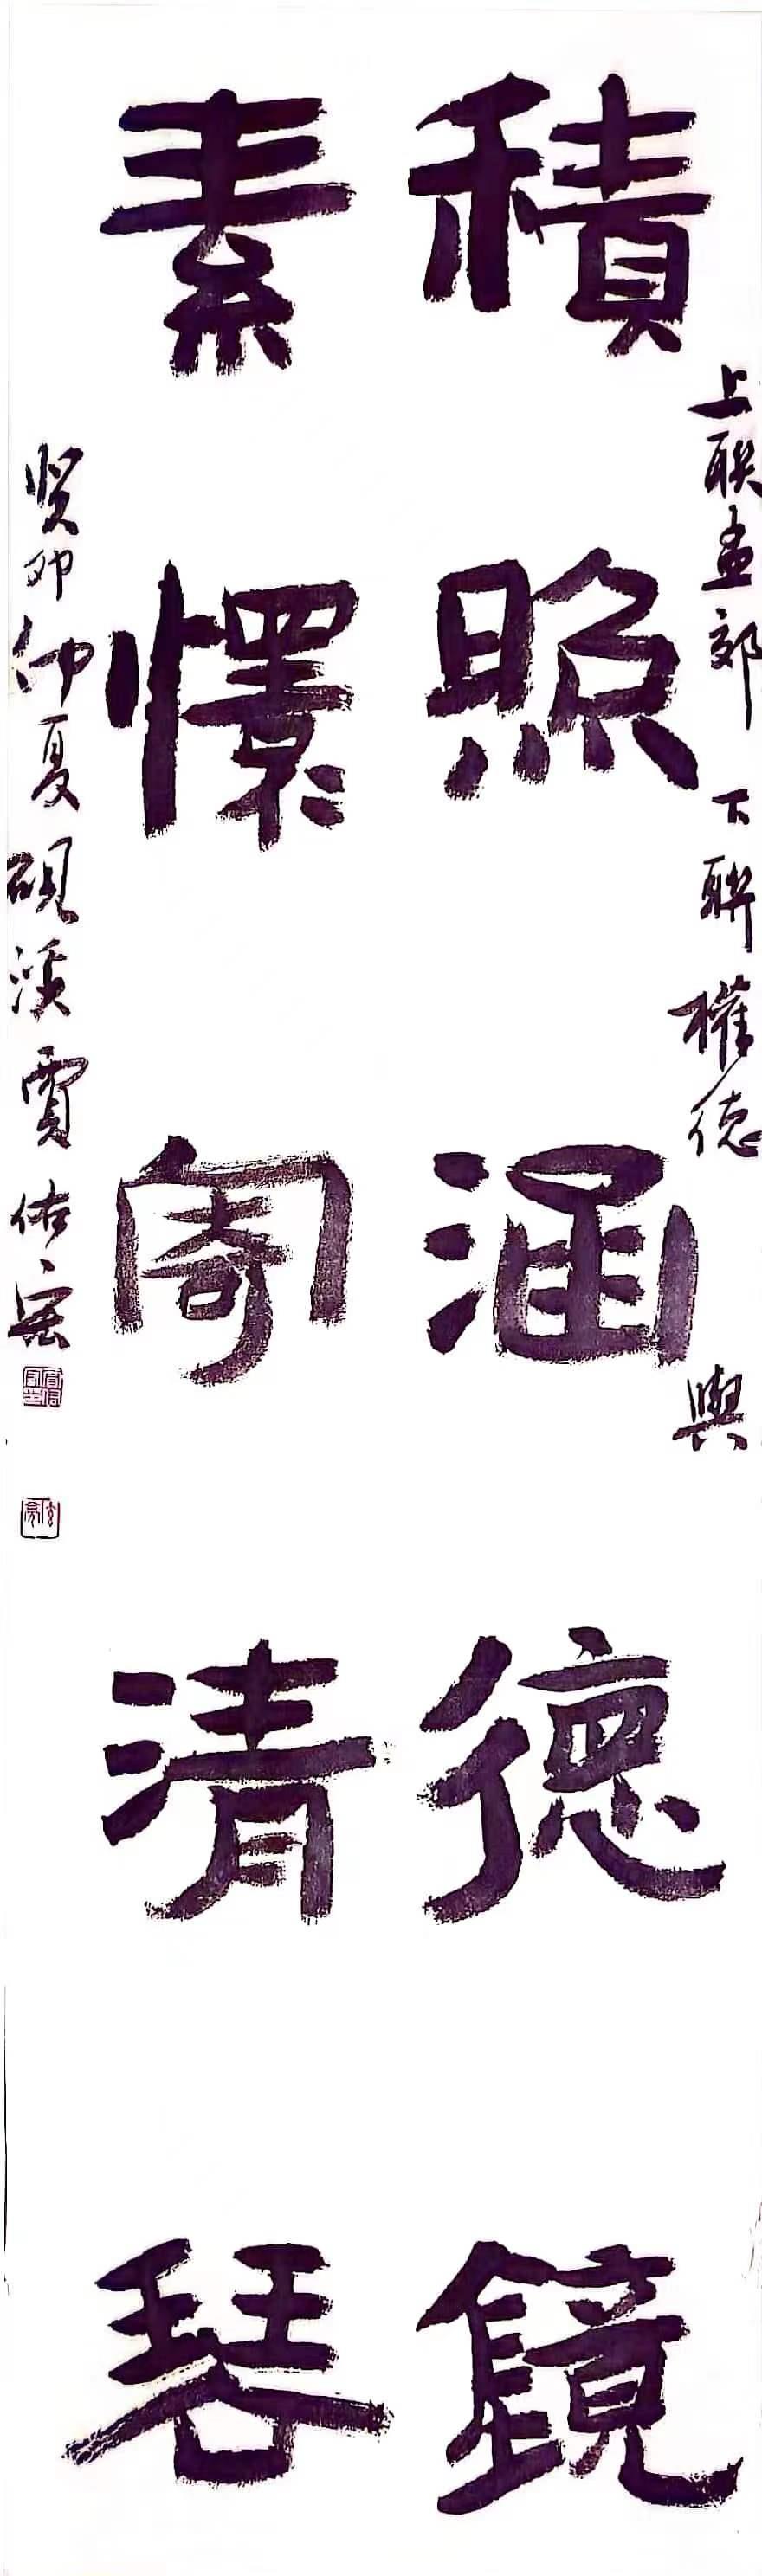 上联孟郊 下聯權德輿
積照涵德鏡
素懷寄清琴
癸卯仲夏硯溪賈佑宏